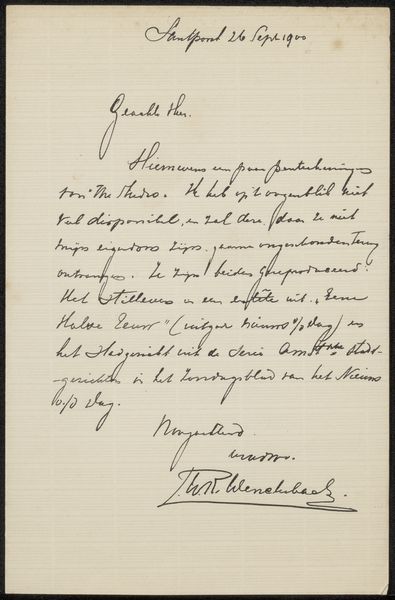 Santpoort 26 Sept. 1900
Geachte Heer.
Hiernevens een paar penteekeningen
Ik heb op 't oogenblik niet
veel disponibel, en zal deze, daar ze niet
mijn eigendom zijn, gaarne ongeschonden terug
ontvangen. Ze zijn beiden gereproduceerd:
Het stilleven is een entête uit "Eene
Halve Eeuw" (uitgave Nieuws v/d Dag) en
het Stadgezicht uit de serie Amst. Stads-
gezichten in het Zondagsblad van het Nieuws
v/d Dag.
Hoogachtend
W. Wenckebach.